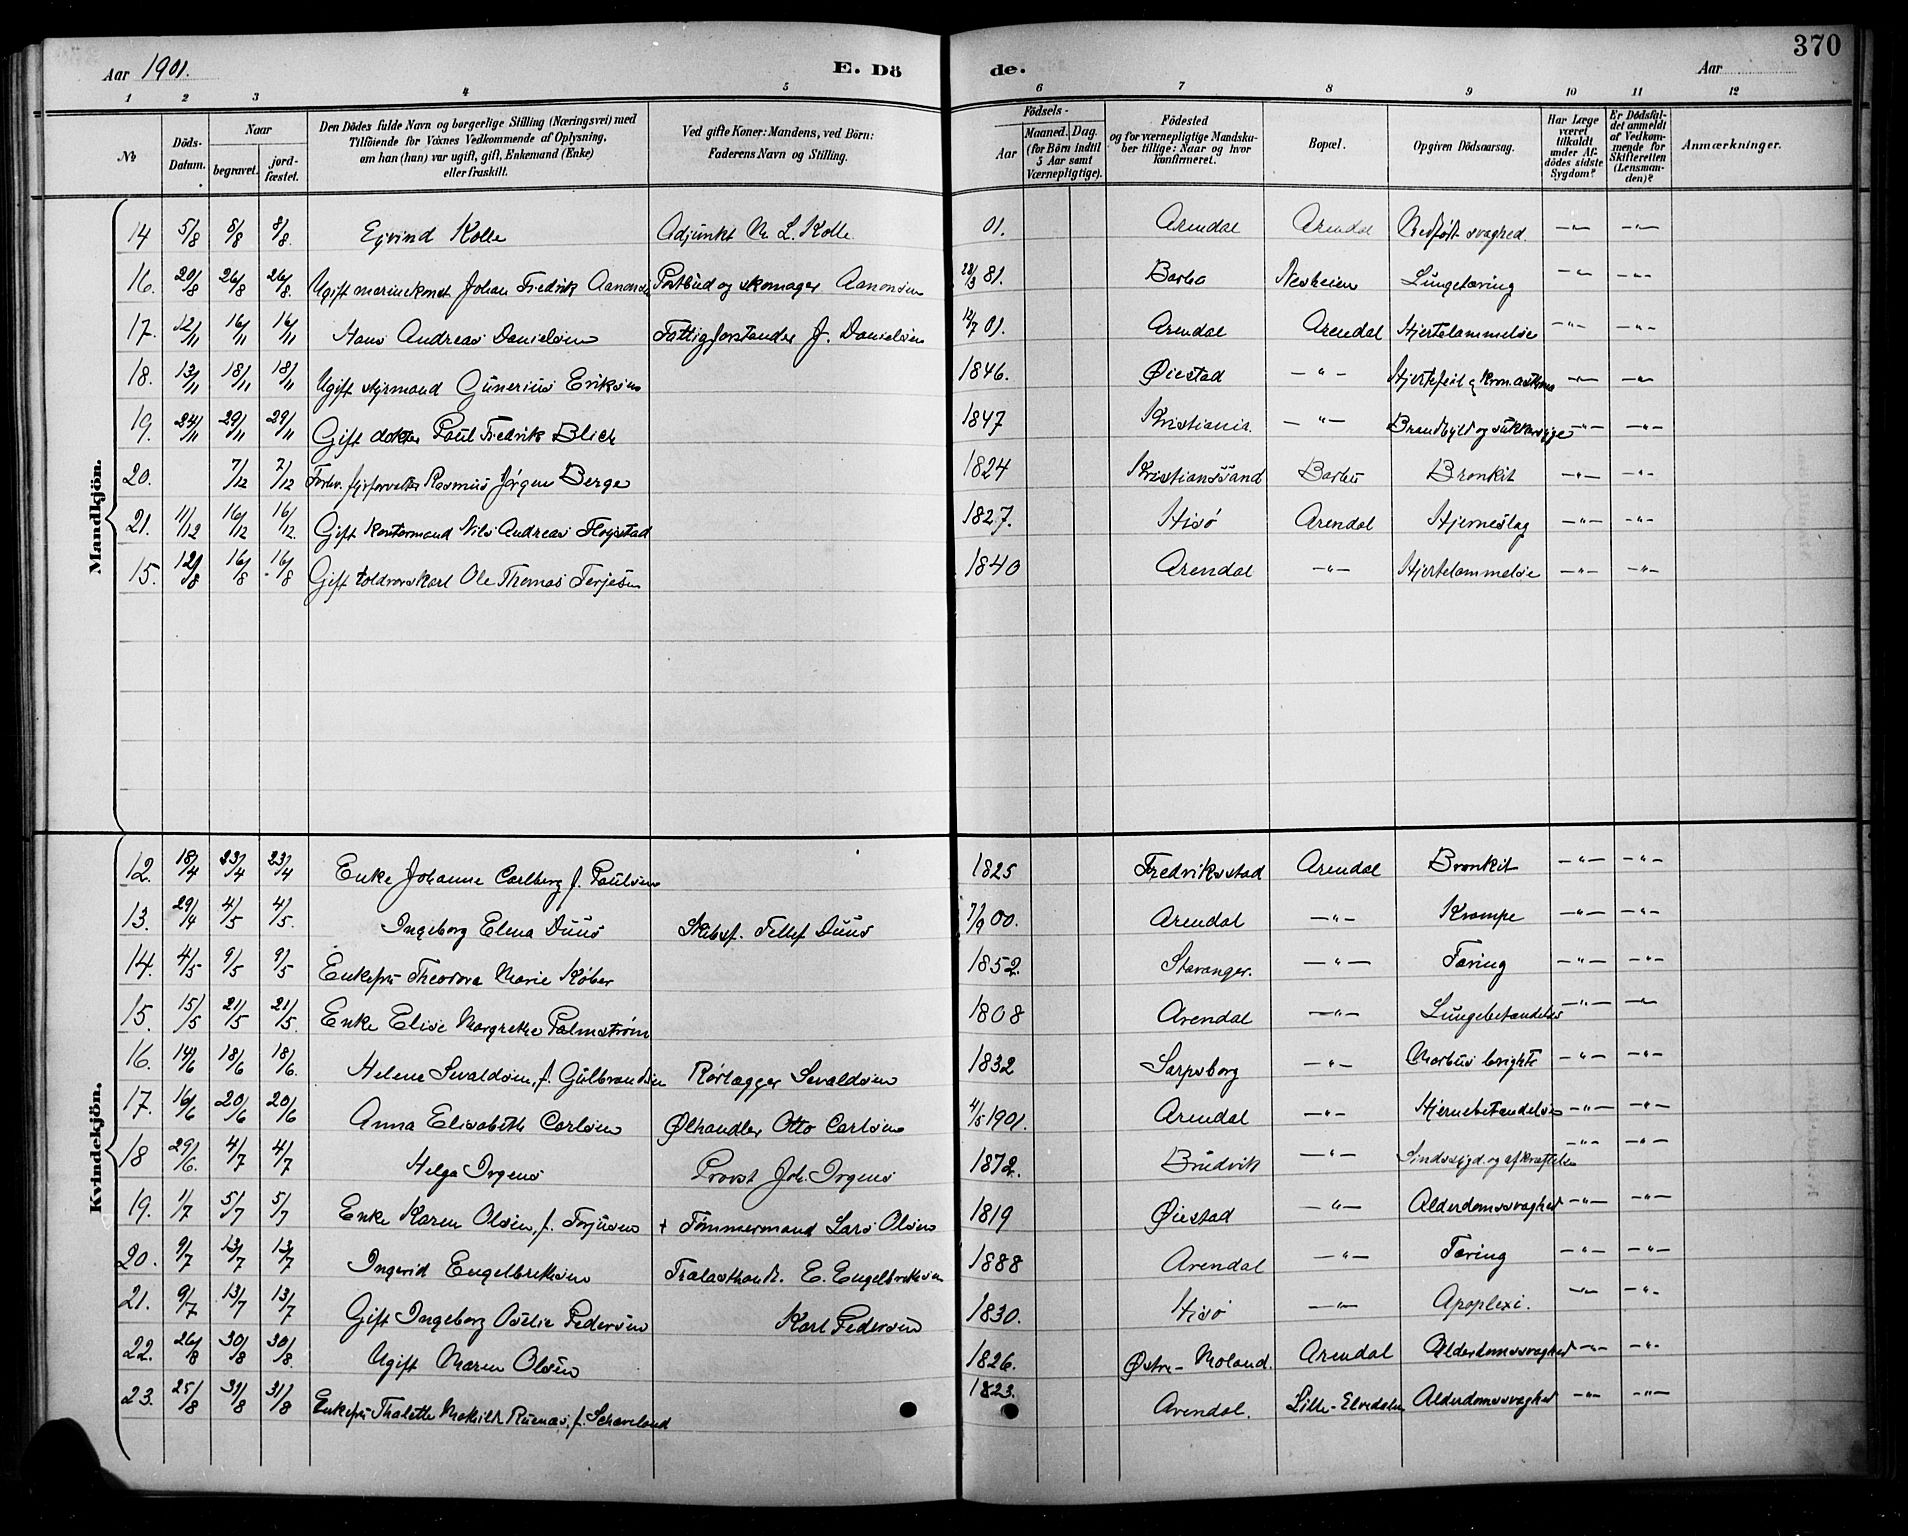 370
Aar 1901. E. Dö de. Aar
1 2 3 4 5 6 7 8 9 10 11 12
№ Döds-Datum. Naar begravet. jord-fæstet. Den Dödes fulde Navn og borgerlige Stilling (Næringsvei) med Tilföiende for Voxnes Vedkommende af Oplysning, om han (hun) var ugift, gift, Enkemand (Enke) eller fraskilt. Ved gifte Koner: Mandens, ved Börn: Faderens Navn og Stilling. Födsels- Aar Maaned. Dag. (for Börn indtil 5 Aar samt Værnepligtige). Födested og for værnepligtige Mandskaber tillige: Naar og hvor konfirmeret. Bopæl. Opgiven Dödsaarsag. Har Læge været tilkaldt under Afdödes sidste Sygdom? Er Dødsfaldet anmeldt af Vedkommende for Skifteretten (Lensmanden)? Anmærkninger.
Mandkjön.
14 5/8 8/8 8/8. Ejvind Kolle Adjunkt N. L. Kolle 01. Arendal Arendal Medfødt svaghed. —"— —"—
16. 20/8 26/8 26/8. Ugift marinekonst Johan Fredrik Aanonsen Postbud og skomager Aanonsen 28/3 81. Barbo Nesheien Lungetæring —"— —"—
17. 12/11 16/11 16/11 Hans Andreas Danielsen Fattigforstander J. Danielsen 14/7 01. Arendal Arendal Hjertelammelse —"— —"—
18. 13/11 18/11 18/11 Ugift styrmand Gunerius Eriksen 1846. Øiestad —"— Hjertefeil & kron. asthma —"— —"—
19. 24/11 29/11 29/11 Gift doktor Paul Fredrik Blich 1847 Kristiania. —"— Brandbyld og sukkersyge —"— —"—
20. 7/12 7/12 Forhv. fyrforvalter Rasmus Jørgen Berge 1824 Kristianssand Barbu Bronkit —"— —"—
21. 11/12 16/12 16/12. Gift kontormand Nils Andreas Fløystad 1827. Hisø Arendal Hjerneslag —"— —"—
15. 12/8 16/8 16/8 Gift toldrorskarl Ole Thomas Terjesen 1840 Arendal —"— Hjertelammelse —"— —"—
Kvindekjön.
12. 18/4 23/4 23/4 Enke Johanne Carlberg f. Paulsen 1825 Fredriksstad Arendal Bronkit —"— —"—
13. 29/4 4/5 4/5. Ingeborg Elena Duus Skibsf. Tellef Duus 7/9 00. Arendal —"— Krampe —"— —"—
14. 4/5 9/5 9/5 Enkefru Theodora Marie Køber 1852. Stavanger. —"— Tæring —"— —"—
15. 15/5 21/5 21/5. Enke Elise Margrethe Palmstrøm 1808 Arendal —"— Lungebetændelse —"— —"—
16. 14/6 18/6 18/6. Helene Sevaldsen, f. Gulbrandsen Rørlægger Sevaldsen 1832 Sarpsborg —"— Morbus brightii —"— —"—
17. 16/6 20/6 20/6 Anna Elisabeth Carlsen Ølhandler Otto Carlsen 4/5 1901. Arendal —"— Hjernebetændelse —"— —"—
18 29/6. 4/7 4/7 Helga Irgens Provst Joh. Irgens 1872. Brudvik —"— Sindssygd. og afkræftelse —"— —"—
19. 1/7 5/7 5/7 Enke Karen Olsen, f. Torjusen + Tømmermand Lars Olsen 1819 Øiestad —"— Alderdomssvaghed —"— —"—
20. 9/7 13/7 13/7 Ingerid Engelbriktsen Trælasthandl. E. Engelbriktsen 1888 Arendal —"— Tæring —"— —"—
21. 9/7 13/7 13/7 Gift Ingeborg Oselie Pedersen Karl Pedersen 1830. Hisø —"— Apoplexi. —"— —"—
22. 26/8 30/8 30/8. Ugift Maren Olsen 1826. Østre-Moland. Arendal Alderdomssvaghed —"— —"—
23. 25/8 31/8 31/8 Enkefru Thalette Mathilde f. 1823. Arendal. Lille-Elvedalen Alderdomssvaghed —"— —"—